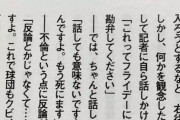 入ろうとすると、右
しかし、何かを観念し
して記者に自ら話しかけ
「これってフライデーに
勘弁してください」
――では、ちゃんと話し
「話しても意味ないです
んですよ。もう死にます
――不倫という点に反論
「反論とかじゃなくて
すよ。これで球団もクビ